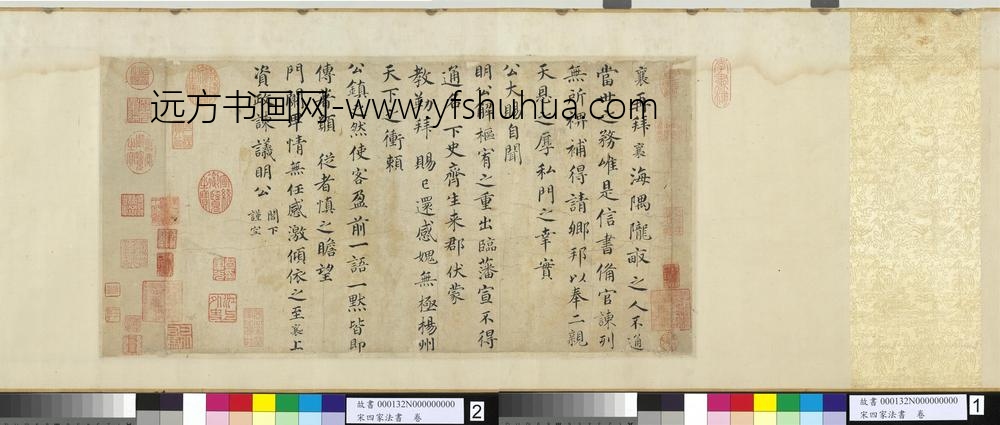 襄再拜襄海隅隴畝之人不通
當世之務唯是信書備官諫列
無所裨補得請鄉邦以奉二親
天恩之厚私門之幸實
公大賜自聞
明公解樞宥之重出臨藩宣不得
下史齊生来郡伏蒙
教勒拜賜已還感媿無極楊州
天下之衝賴
公鎮撫然使客盈前一語一黙皆即
傳播願從者慎之瞻望
門闌卑情無任感激傾依之至襄上
資政諫議明公閤下
謹空
远方书画网-www.yfshuhua.com
故書 000132N000000000
宋四家法書 卷
2
故書 000132N000000000
宋四家法書 卷
1